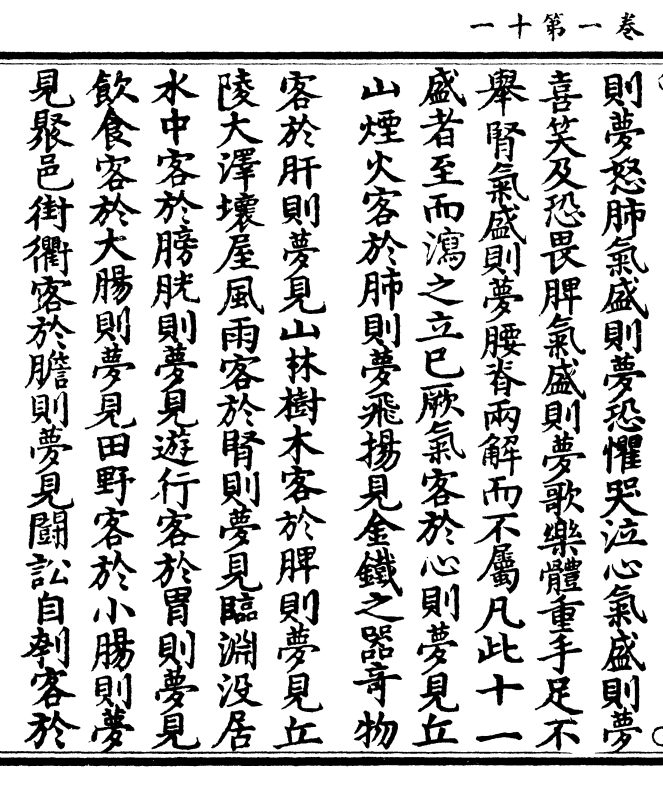 卷一第十一
則夢怒肺氣盛則夢恐懼哭泣心氣盛則夢
喜笑及恐畏脾氣盛則夢歌樂體重手足不
舉腎氣盛則夢腰脊兩解而不屬凡此十一
盛者至而瀉之立已厥氣客於心則夢見丘
山煙火客於肺則夢飛揚見金鐵之器奇物
客於肝則夢見山林樹木客於脾則夢見丘
陵大澤壞屋風雨客於腎則夢見臨淵沒居
水中客於膀胱則夢見遊行客於胃則夢見
飲食客於大腸則夢見田野客於小腸則夢
見聚邑街衢客於膽則夢見鬪訟自刳客於